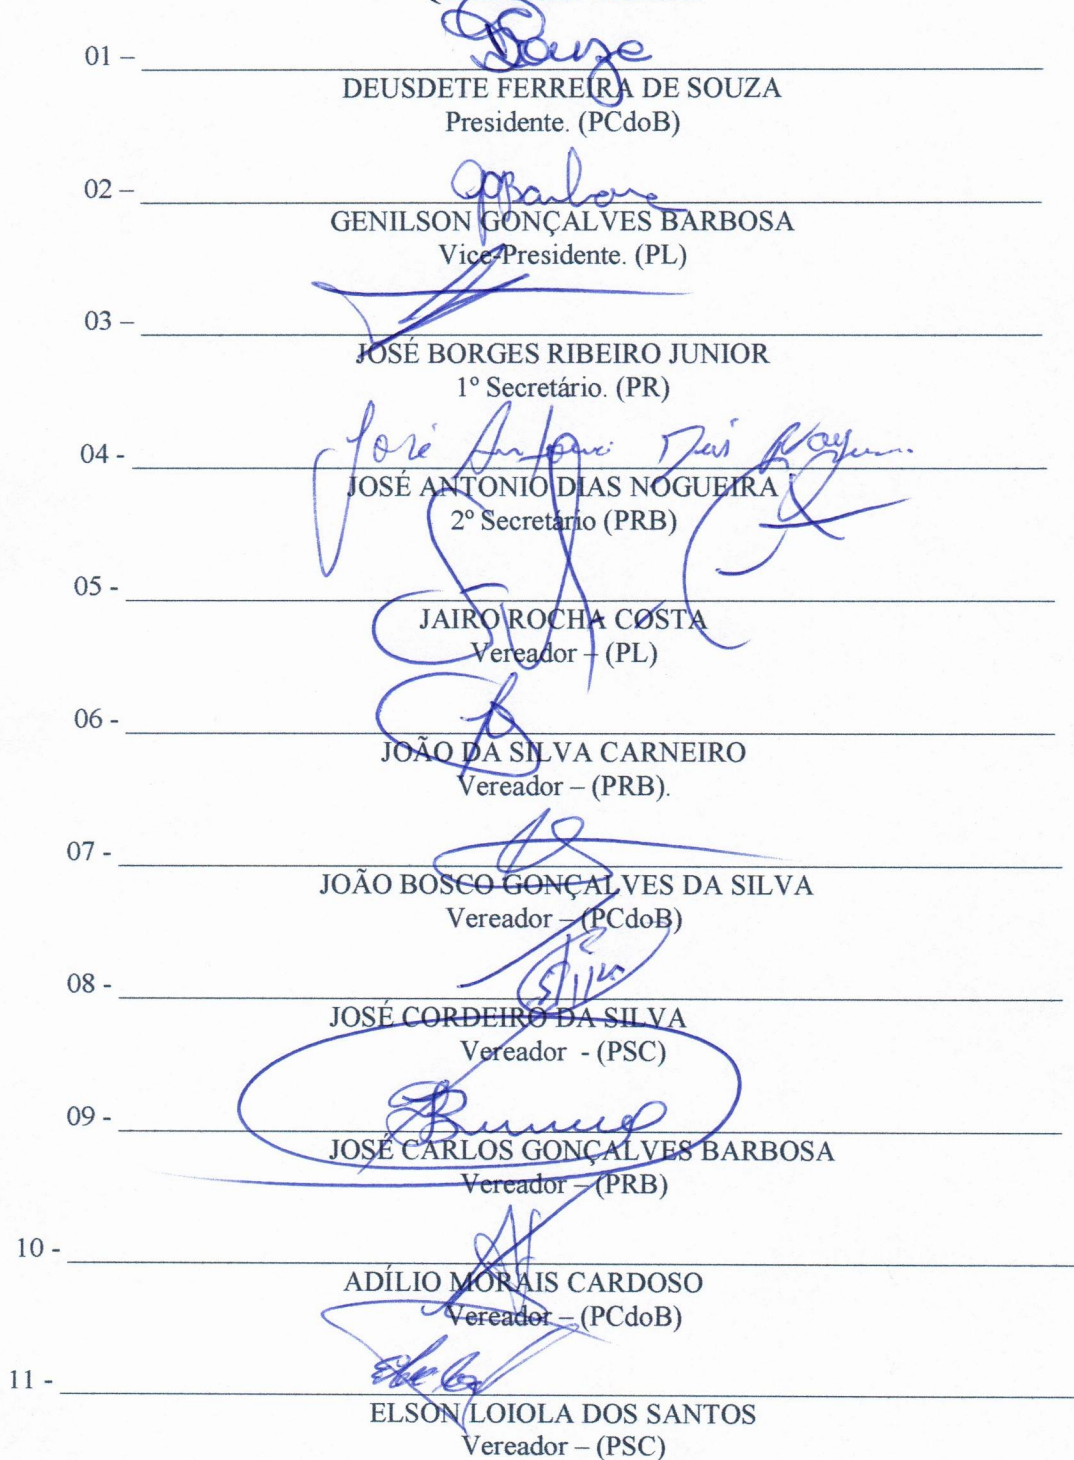 Souza
01 –
DEUSDETE FERREIRA DE SOUZA
Presidente. (PCdoB)
Barbosa
02 –
GENILSON GONÇALVES BARBOSA
Vice-Presidente. (PL)
03 –
JOSÉ BORGES RIBEIRO JUNIOR
1º Secretário. (PR)
José Antonio Dias Nogueira
04 -
JOSÉ ANTONIO DIAS NOGUEIRA
2º Secretário (PRB)
05 -
JAIRO ROCHA COSTA
Vereador – (PL)
06 -
JOÃO DA SILVA CARNEIRO
Vereador – (PRB).
07 -
JOÃO BOSCO GONÇALVES DA SILVA
Vereador – (PCdoB)
08 -
JOSÉ CORDEIRO DA SILVA
Vereador - (PSC)
09 -
JOSÉ CARLOS GONÇALVES BARBOSA
Vereador – (PRB)
10 -
ADÍLIO MORAIS CARDOSO
Vereador – (PCdoB)
11 -
ELSON LOIOLA DOS SANTOS
Vereador – (PSC)